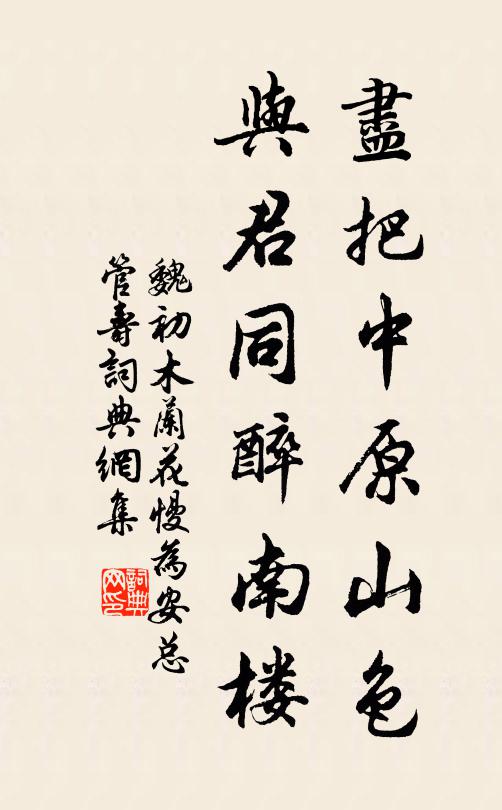 盡把中原山色
與君同醉南楼
魏初木蘭花慢為安总
管壽詞典網集
詞典网印